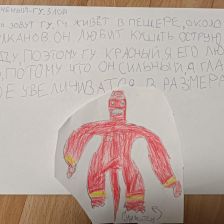 ЧЁНЫЙ-ГУ. ЗЛОЙ
ЗОВУТ ГУ. ГУ ЖИВЁТ В ПЕЩЕРЕ, ОКОЛО
ЛКАНОВ ОН ЛЮБИТ КУШАТЬ ОСТРУЮ
ДУ, ПОЭТОМУ ГУ КРАСНЫЙ, Я ЕГО ЛЮ
, ПОТОМУ ЧТО ОН СИЛЬНЫЙ, А ГЛА
ОЕ УВЕЛИЧИВАТСЯ В РАЗМЕР